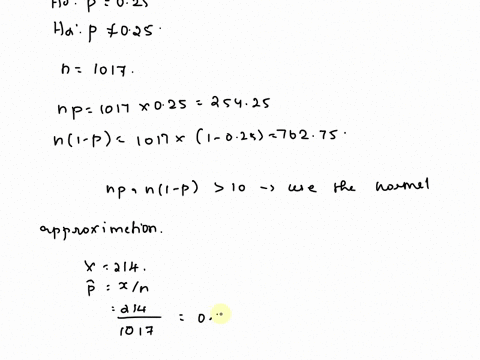 Ho: p = 0.25
Ha: p ≠ 0.25.
n = 1017.
np = 1017 × 0.25 = 254.25
n(1-p) = 1017 × (1-0.25) = 762.75.
np, n(1-p) > 10 → use the normal
approximation.
x = 214.
p̂ = x/n
= 214/1017 = 0.